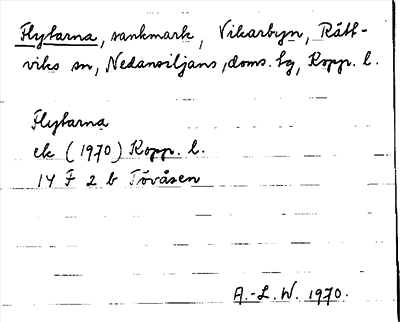 Flytarna, sankmark, Vikarbyn, Rätt-
viks sn, Nedansiljans doms. tg, Kopp. l.
Flytarna
ek (1970) Kopp. l.
14 F 2 b Tövåsen
A.-L. W. 1970.